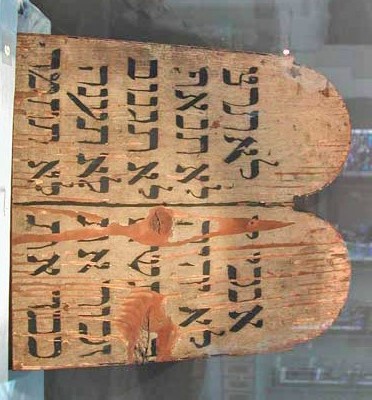 אנכי יי
לא יהיה
תשא
זכור את
כבד את
לא תרצח
לא תנאף
לא תגנוב
לא תענה
לא תחמד